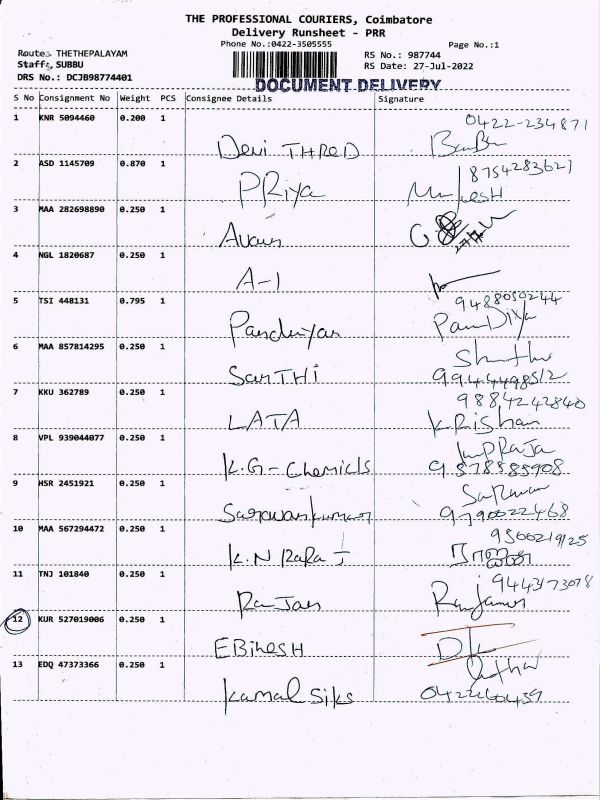 THE PROFESSIONAL COURIERS, Coimbatore
Delivery Runsheet - PRR
Phone No.:0422-3505555
Page No.:1
Route: THETHEPALAYAM
RS No.: 987744
Staff: SUBBU
RS Date: 27-Jul-2022
DRS No.: DCJB98774401
DOCUMENT DELIVERY
S No Consignment No Weight PCS Consignee Details Signature
1 KNR 5094460 0.200 1
0422-234871
Devi THRED
2 ASD 1145709 0.870 1
8754283621
PRiya Mukesh
3 MAA 282698890 0.250 1
4 NGL 1820687 0.250 1
A-1
5 TSI 448131 0.795 1
9488050244
Pandiyan PamDiya
6 MAA 857814295 0.250 1
SanTHi 9944498512
7 KKU 362789 0.250 1
9884242840
LATA KRiShan
8 VPL 939044077 0.250 1
K.G-Chemicls 9578585908
9 HSR 2451921 0.250 1
Saravankumar 9790022468
10 MAA 567294472 0.250 1
9500219125
K.N RaRa J
11 TNJ 101840 0.250 1
9443173078
RaJan
12 KUR 527019006 0.250 1
EBinesH
13 EDQ 47373366 0.250 1
Kamal Silks